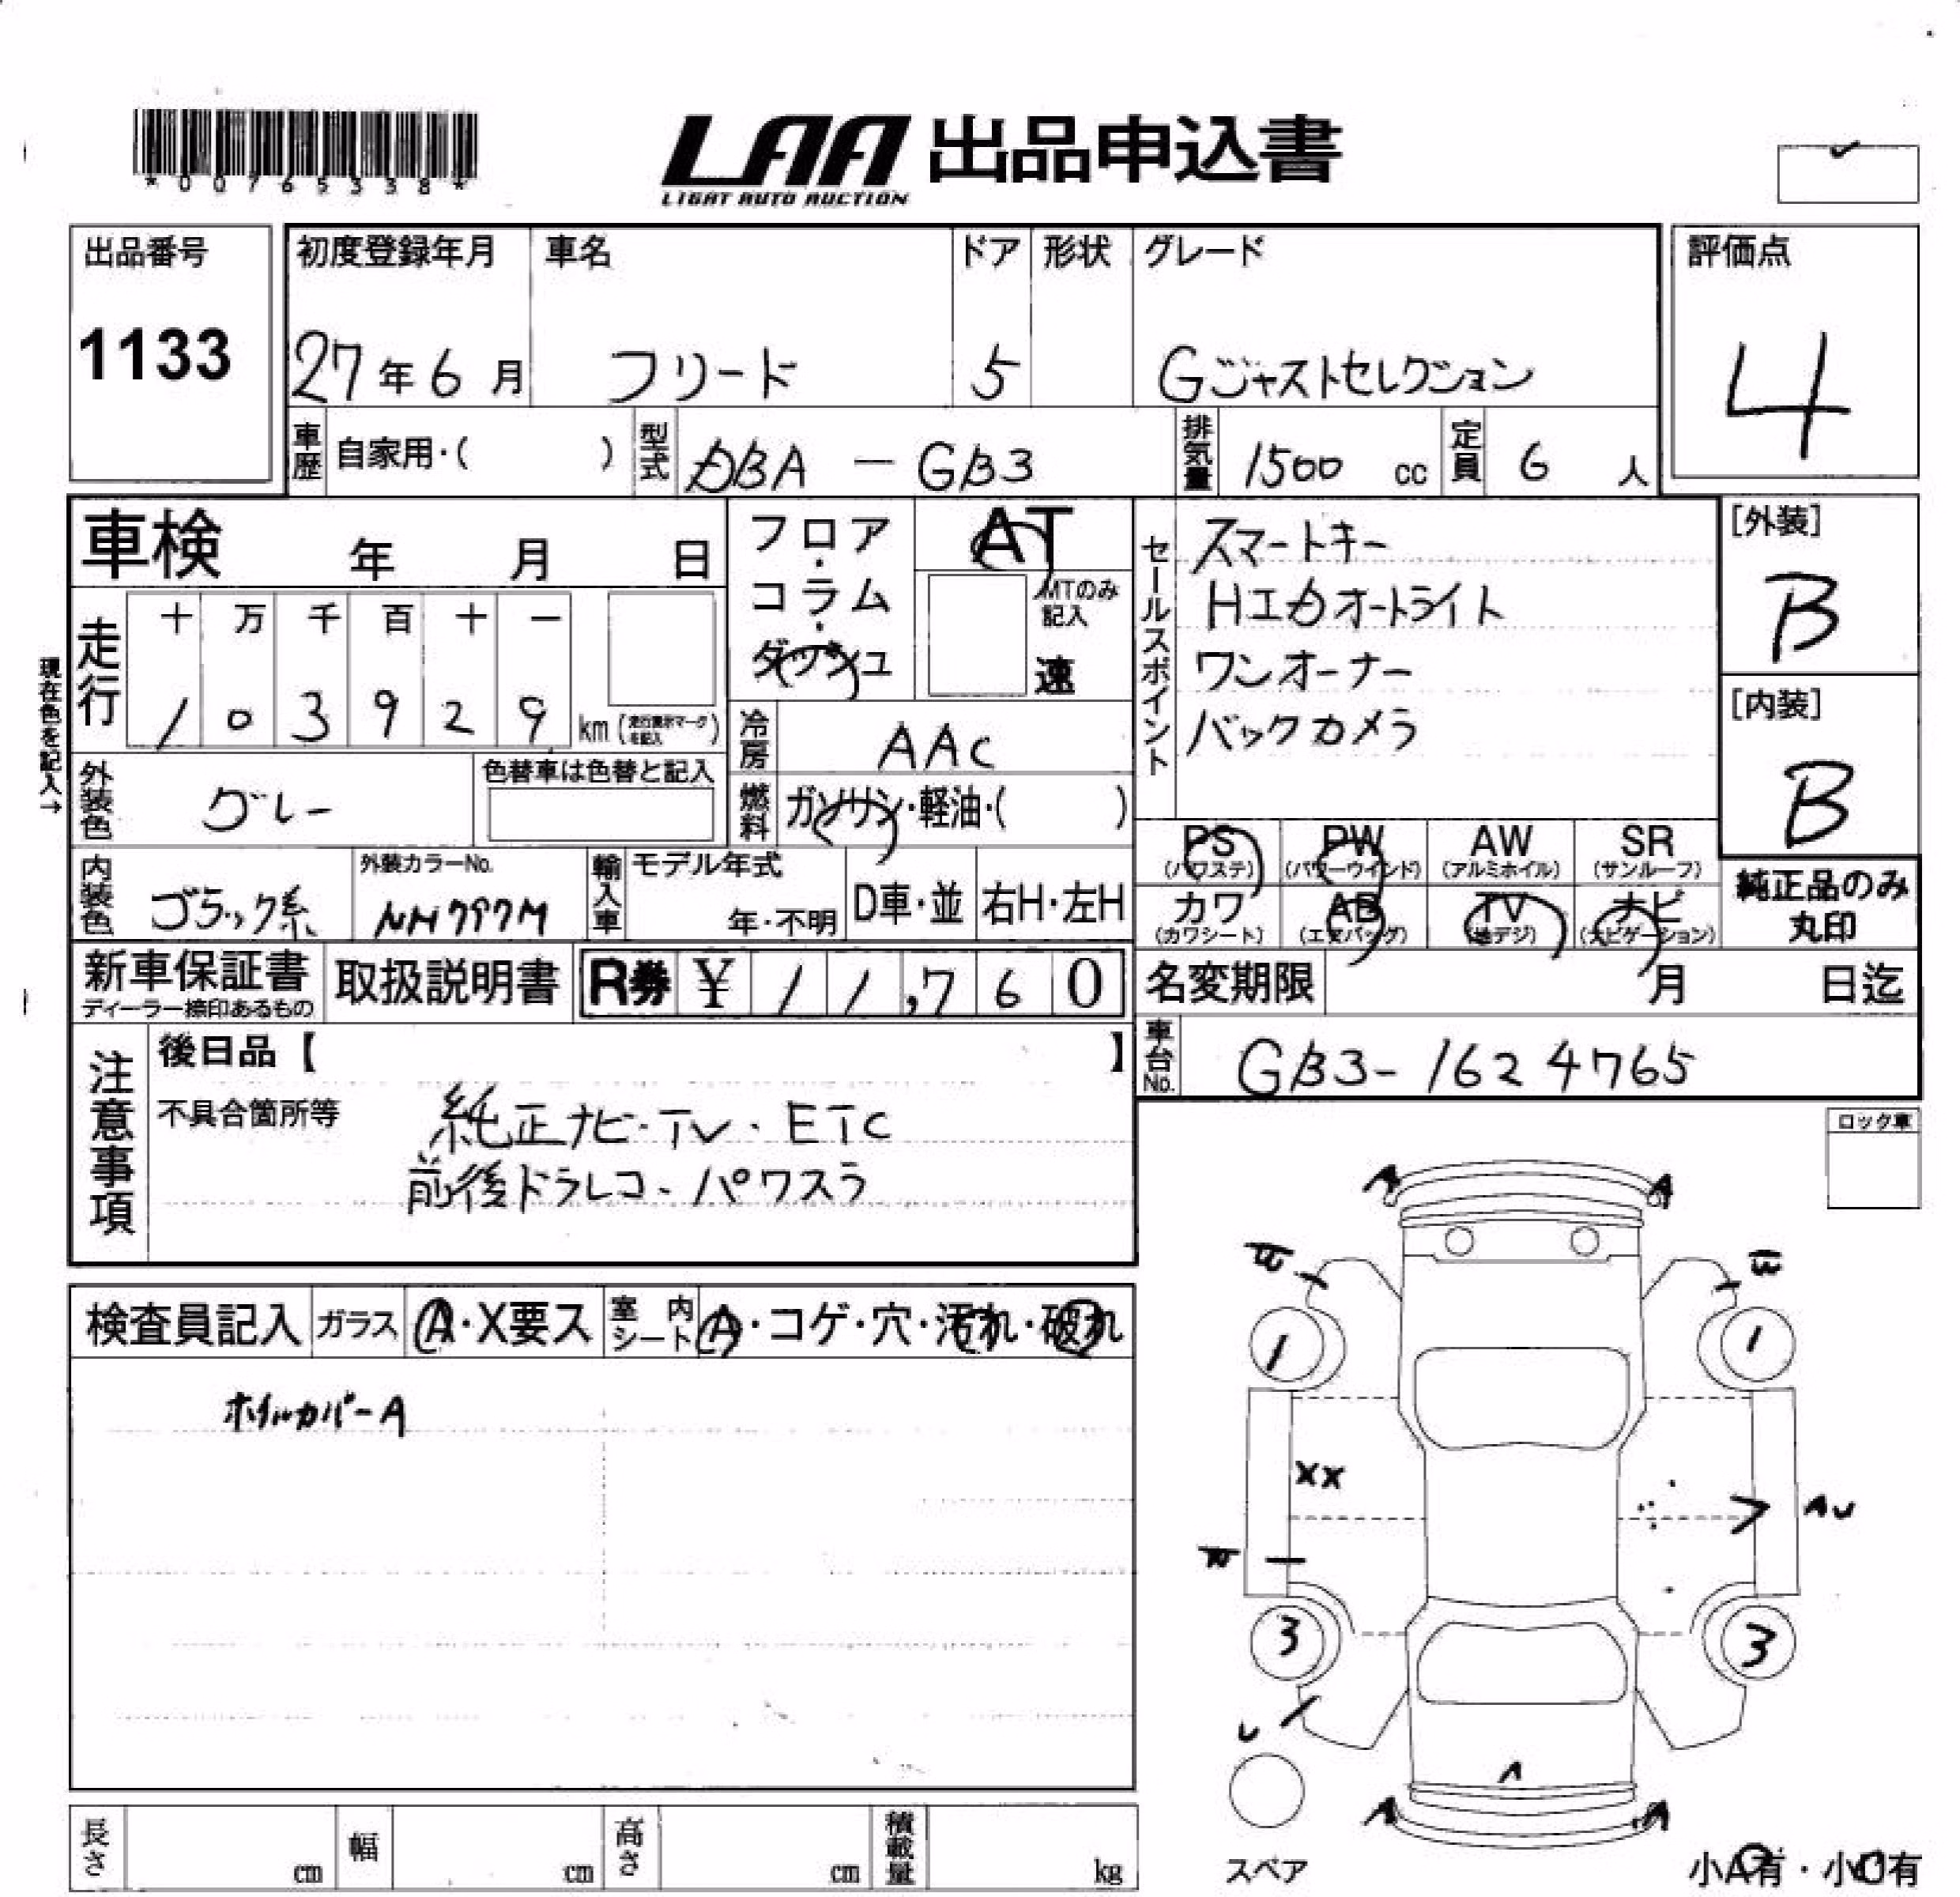 *00765338*
LAA 出品申込書
LIGHT AUTO AUCTION
出品番号
1133
初度登録年月
27年6月
車名
フリード
ドア
5
形状
グレード
Gジャストセレクション
評価点
4
車歴
自家用・( )
型式
DBA - GB3
排気量
1500 cc
定員
6 人
車検 年 月 日
フロア・コラム・ダッシュ
AT
MTのみ記入
速
セールスポイント
スマートキー
HIDオートライト
ワンオーナー
バックカメラ
[外装]
B
[内装]
B
現在色を記入→
走行
十 万 千 百 十 一
1 0 3 9 2 9 km
冷房
AAC
燃料
ガソリン・軽油・( )
外装色
グレー
色替車は色替と記入
内装色
ブラック系
外装カラーNo.
NH797M
輸入車
モデル年式
年・不明
D車・並
右H・左H
PS (パワステ)
PW (パワーウインド)
AW (アルミホイル)
SR (サンルーフ)
カワ (カワシート)
AB (エアバッグ)
TV (地デジ)
ナビ (ナビゲーション)
純正品のみ
丸印
新車保証書
ディーラー捺印あるもの
取扱説明書
R券 ¥ 11,760
名変期限 月 日迄
車台No.
GB3-1624765
注意事項
後日品【 】
不具合箇所等
純正ナビ・TV・ETC
前後ドラレコ・パワスラ
ロック車
検査員記入
ガラス
A・X要ス
室内シート
A・コゲ・穴・汚れ・破れ
ホイルカバーA
A A
1 1
XX
AU
3 3
U
A
A A
スペア
小A有・小U有
長さ cm
幅 cm
高さ cm
積載量 kg